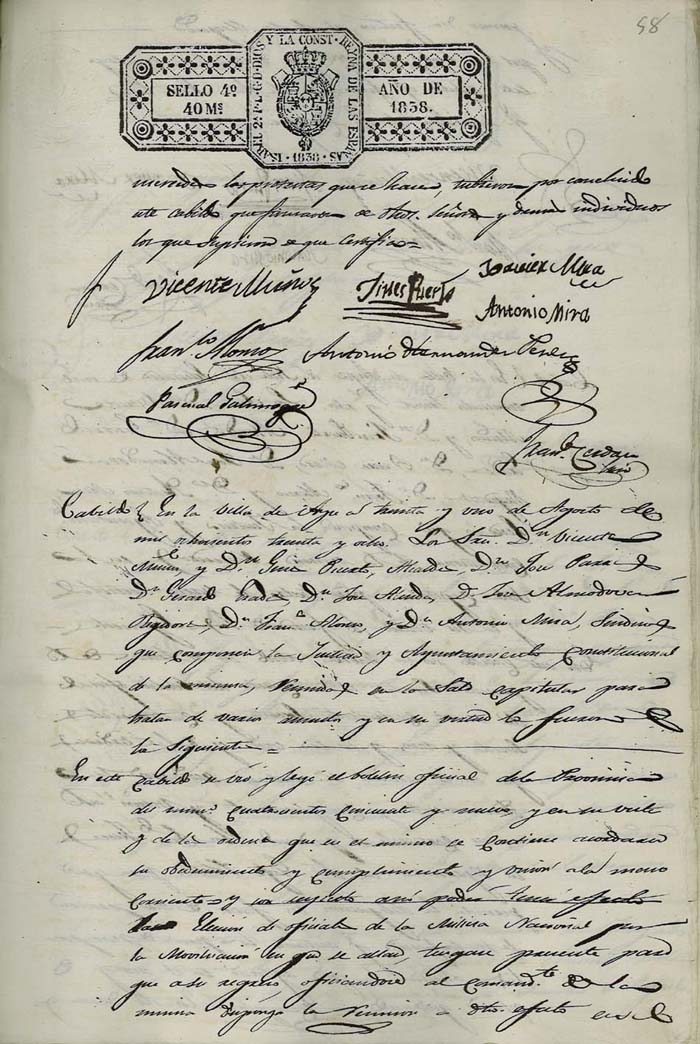 58
ISABEL 2ª P.L.G.D.DIOS Y LA CONST. REYNA DE LAS ESPAÑAS
1838
SELLO 4º
40 Ms
AÑO DE
1838.
las protestas que se hacen, tubieron por concluido
este Cabildo que firmaron de dhos. Señores y demas individuos
los que supieron de que certifico =
Vicente Muñoz
Gines Puerto
Xavier Mira
Antonio Mira
Franco. Alonso
Antonio Hernandez Perez
Pascual
Cabildo En la Villa de Aspe a treinta y uno de Agosto de
mil ochocientos treinta y ocho. Los Sres. Dn. Vicente
Muñoz y Dn. Gines Puerto, Alcaldes, Dn. Jose
Dn. Gerardo Dn. Jose D. Jose Almodovar
Regidores, Dn. Franco. Alonso, y Dn. Antonio Mira, Sindicos
que componen la Justicia y Ayuntamiento Constitucional
de la misma, reunidos en la Sala Capitular para
tratar de varios asuntos y en su virtud lo fueron
los siguientes =
En este Cabildo se vió y leyó el boletin oficial de la Provincia
del numo. cuatrocientos cincuenta y nueve, y en su vista
y de las ordenes que en el mismo se contiene acordaron
su obedecimiento y cumplimiento y unión a la mano
corriente = y con respecto
Elección de oficiales de la Milicia Nacional por
la Movilización en que se allan, tengase presente para
que a su regreso, oficiandose al Comandte. de la
misma disponga la reunion a dho. efecto en el